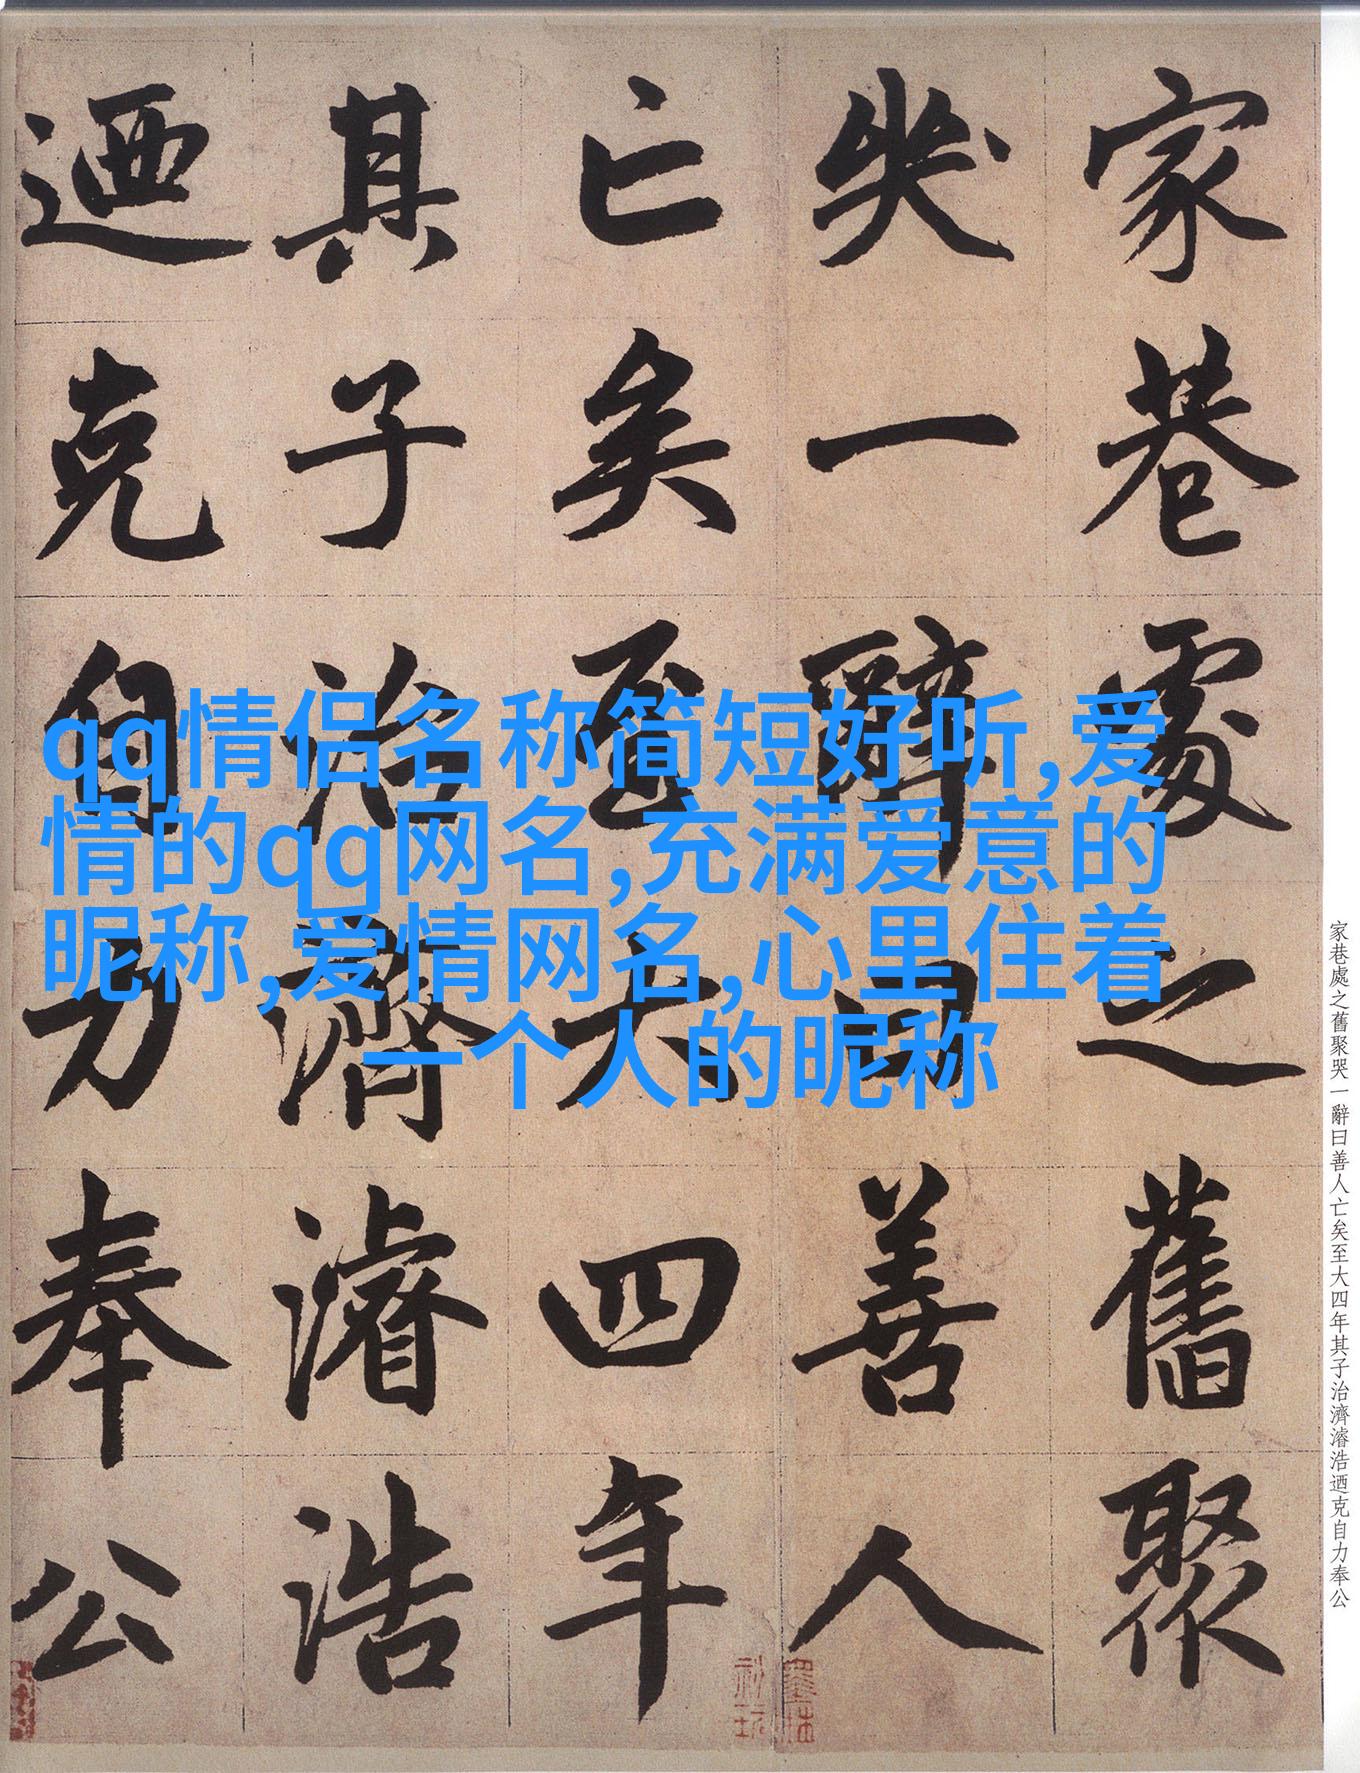 家巷處之舊聚
哭一辭曰善人
亡矣至大四年
其子治濟濬浩
迺克自力奉公
qq情侣名称简短好听,爱
情的qq网名,充满爱意的
昵称,爱情网名,心里住着
一个人的昵称
家巷處之舊聚哭一辭曰善人亡矣至大四年其子治濟濬浩迺克自力奉公
墨林
秘玩